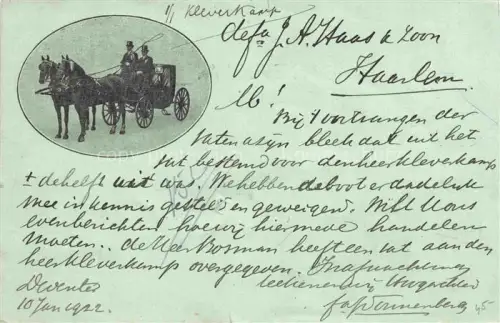 i/z Kleverkamp
de fa J. A. Haas & Zoon
Haarlem.
M!
Bij 't ontvangen der
vaten azijn bleek dat uit het
vat bestemd voor den heer Kleverkamp
± de helft uit was. We hebben de boot er dadelijk
mee in kennis gesteld en geweigerd. Wilt U ons
even berichten hoe wij hiermede handelen
moeten. de Heer Bosman heeft een vat aan den
heer Kleverkamp overgegeven. In afwachting
Deventer teekenen wij Hoogachtend
10 Jan 1922. fa
45